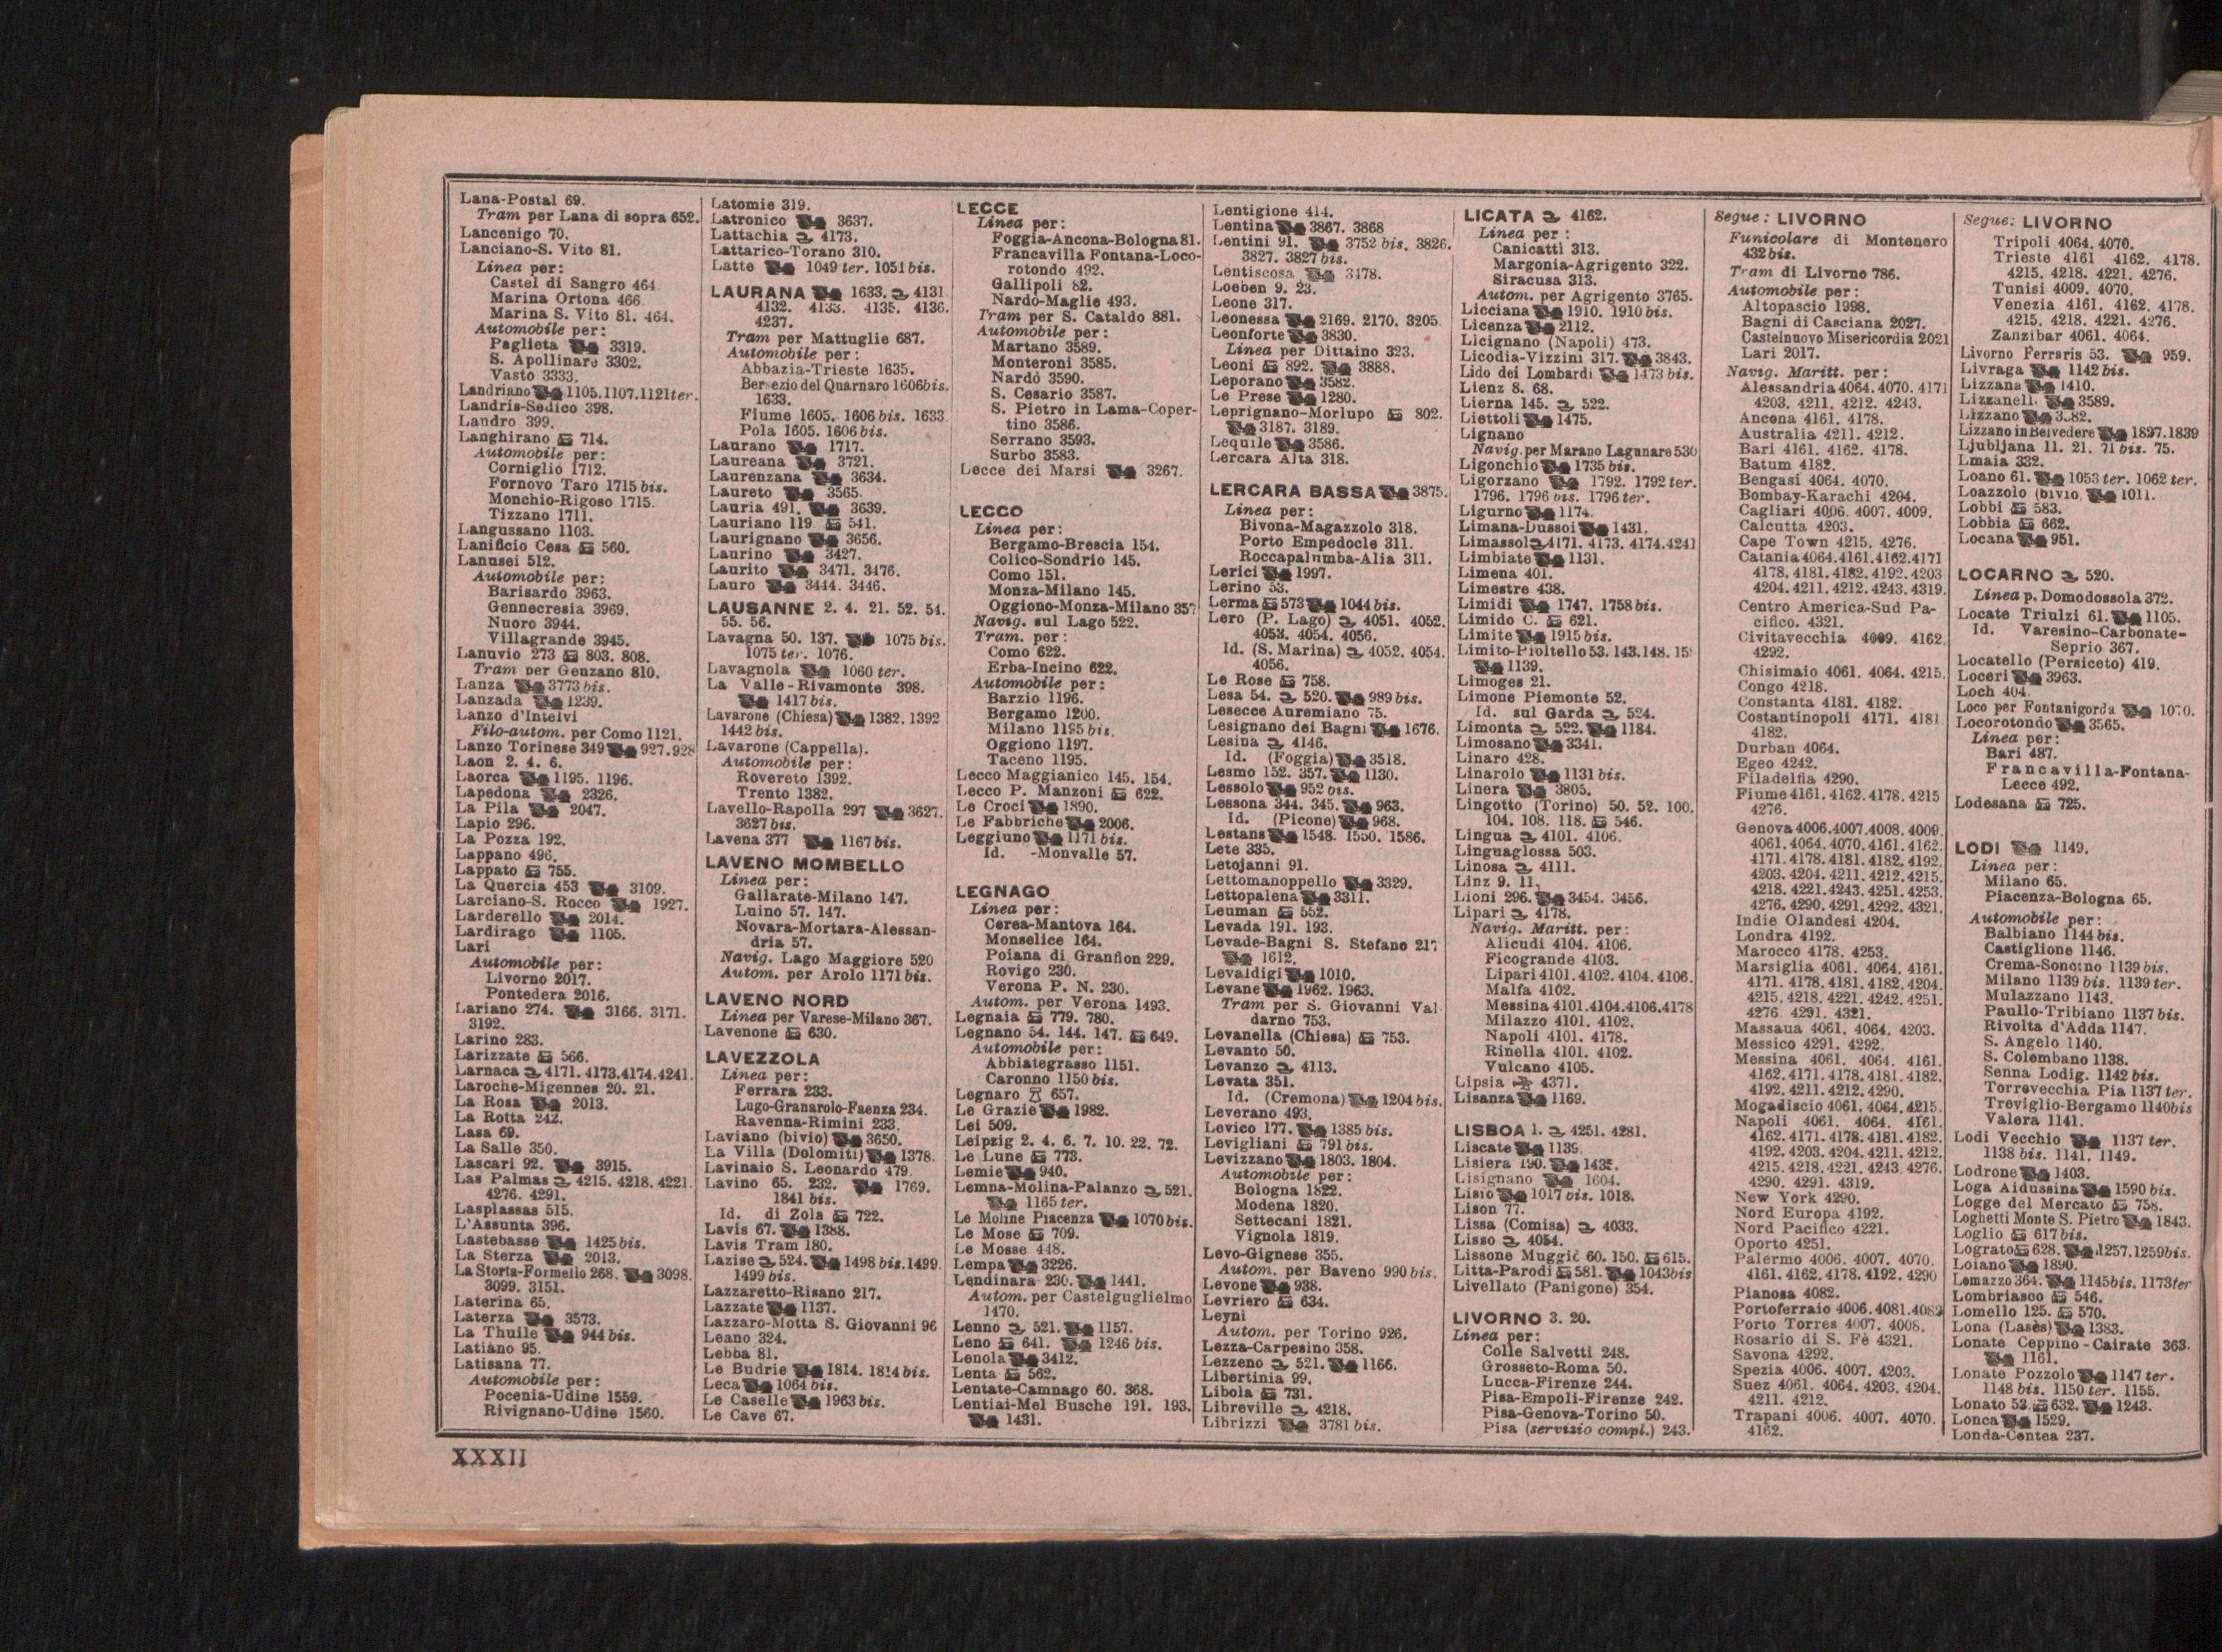 Lana-Postal 69.
Tram per Lana di sopra 652.
Lancenigo 70.
Lanciano-S. Vito 81.
Linea per:
Castel di Sangro 464.
Marina Ortona 466.
Marina S. Vito 81. 464.
Automobile per:
Paglieta 3319.
S. Apollinare 3302.
Vasto 3333.
Landriano 1105.1107.1121ter.
Landris-Sedico 398.
Landro 399.
Langhirano 714.
Automobile per:
Corniglio 1712.
Fornovo Taro 1715 bis.
Monchio-Rigoso 1715.
Tizzano 1711.
Langussano 1103.
Lanificio Cesa 560.
Lanusei 512.
Automobile per:
Barisardo 3963.
Gennecresia 3969.
Nuoro 3944.
Villagrande 3945.
Lanuvio 273 803. 808.
Tram per Genzano 810.
Lanza 3773 bis.
Lanzada 1239.
Lanzo d'Intelvi
Filo-autom. per Como 1121.
Lanzo Torinese 349 927.928
Laon 2. 4. 6.
Laorca 1195. 1196.
Lapedona 2326.
La Pila 2047.
Lapio 296.
La Pozza 192.
Lappano 496.
Lappato 755.
La Quercia 453 3109.
Larciano-S. Rocco 1927.
Larderello 2014.
Lardirago 1105.
Lari
Automobile per:
Livorno 2017.
Pontedera 2016.
Lariano 274. 3166. 3171.
3192.
Larino 283.
Larizzate 566.
Larnaca 4171. 4173.4174.4241.
Laroche-Migennes 20. 21.
La Rosa 2013.
La Rotta 242.
Lasa 69.
La Salle 350.
Lascari 92. 3915.
Las Palmas 4215. 4218. 4221.
4276. 4291.
Lasplassas 515.
L'Assunta 396.
Lastebasse 1425 bis.
La Sterza 2013.
La Storta-Formello 268. 3098.
3099. 3151.
Laterina 65.
Laterza 3573.
La Thuile 944 bis.
Latiano 95.
Latisana 77.
Automobile per:
Pocenia-Udine 1559.
Rivignano-Udine 1560.
Latomie 319.
Latronico 3637.
Lattachia 4173.
Lattarico-Torano 310.
Latte 1049 ter. 1051 bis.
LAURANA 1633. 4131
4132. 4133. 4135. 4136.
4237.
Tram per Mattuglie 687.
Automobile per:
Abbazia-Trieste 1635.
Bersezio del Quarnaro 1606bis.
1633.
Fiume 1605. 1606 bis. 1633
Pola 1605. 1606 bis.
Laurano 1717.
Laureana 3721.
Laurenzana 3634.
Laureto 3565.
Lauria 491. 3639.
Lauriano 119 541.
Laurignano 3656.
Laurino 3427.
Laurito 3471. 3476.
Lauro 3444. 3446.
LAUSANNE 2. 4. 21. 52. 54.
55. 56.
Lavagna 50. 137. 1075 bis.
1075 ter. 1076.
Lavagnola 1060 ter.
La Valle-Rivamonte 398.
1417 bis.
Lavarone (Chiesa) 1382. 1392
1442 bis.
Lavarone (Cappella).
Automobile per:
Rovereto 1392.
Trento 1382.
Lavello-Rapolla 297 3627.
3627 bis.
Lavena 377 1167 bis.
LAVENO MOMBELLO
Linea per:
Gallarate-Milano 147.
Luino 57. 147.
Novara-Mortara-Alessan-
dria 57.
Navig. Lago Maggiore 520
Autom. per Arolo 1171 bis.
LAVENO NORD
Linea per Varese-Milano 367.
Lavenone 630.
LAVEZZOLA
Linea per:
Ferrara 233.
Lugo-Granarolo-Faenza 234.
Ravenna-Rimini 233.
Laviano (bivio) 3650.
La Villa (Dolomiti) 1378.
Lavinaio S. Leonardo 479.
Lavino 65. 232. 1769.
1841 bis.
Id. di Zola 722.
Lavis 67. 1388.
Lavis Tram 180.
Lazise 524. 1498 bis.1499
1499 bis.
Lazzaretto-Risano 217.
Lazzate 1137.
Lazzaro-Motta S. Giovanni 96
Leano 324.
Lebba 81.
Le Budrie 1814. 1814 bis.
Leca 1064 bis.
Le Caselle 1963 bis.
Le Cave 67.
LECCE
Linea per:
Foggia-Ancona-Bologna 81.
Francavilla Fontana-Loco-
rotondo 492.
Gallipoli 82.
Nardò-Maglie 493.
Tram per S. Cataldo 881.
Automobile per:
Martano 3589.
Monteroni 3585.
Nardò 3590.
S. Cesario 3587.
S. Pietro in Lama-Coper-
tino 3586.
Serrano 3593.
Surbo 3583.
Lecce dei Marsi 3267.
LECCO
Linea per:
Bergamo-Brescia 154.
Colico-Sondrio 145.
Como 151.
Monza-Milano 145.
Oggiono-Monza-Milano 357
Navig. sul Lago 522.
Tram. per:
Como 622.
Erba-Incino 622.
Automobile per:
Barzio 1196.
Bergamo 1200.
Milano 1195 bis.
Oggiono 1197.
Taceno 1195.
Lecco Maggianico 145. 154.
Lecco P. Manzoni 622.
Le Croci 1890.
Le Fabbriche 2006.
Leggiuno 1171 bis.
Id. -Monvalle 57.
LEGNAGO
Linea per:
Cerea-Mantova 164.
Monselice 164.
Poiana di Granfion 229.
Rovigo 230.
Verona P. N. 230.
Autom. per Verona 1493.
Legnaia 779. 780.
Legnano 54. 144. 147. 649.
Automobile per:
Abbiategrasso 1151.
Caronno 1150 bis.
Legnaro 657.
Le Grazie 1982.
Lei 509.
Leipzig 2. 4. 6. 7. 10. 22. 72.
Le Lune 773.
Lemie 940.
Lemna-Molina-Palanzo 521.
1165 ter.
Le Moline Piacenza 1070 bis.
Le Mose 709.
Le Mosse 448.
Lempa 3226.
Lendinara 230. 1441.
Autom. per Castelguglielmo
1470.
Lenno 521. 1157.
Leno 641. 1246 bis.
Lenola 3412.
Lenta 562.
Lentate-Camnago 60. 368.
Lentiai-Mel Busche 191. 193.
1431.
Lentigione 414.
Lentina 3867. 3868
Lentini 91. 3752 bis. 3826.
3827. 3827 bis.
Lentiscosa 3478.
Loeben 9. 23.
Leone 317.
Leonessa 2169. 2170. 3205.
Leonforte 3830.
Linea per Dittaino 323.
Leoni 892. 3888.
Leporano 3582.
Le Prese 1280.
Leprignano-Morlupo 802.
3187. 3189.
Lequile 3586.
Lercara Alta 318.
LERCARA BASSA 3875.
Linea per:
Bivona-Magazzolo 318.
Porto Empedocle 311.
Roccapalumba-Alia 311.
Lerici 1997.
Lerino 53.
Lerma 573 1044 bis.
Lero (P. Lago) 4051. 4052.
4053. 4054. 4056.
Id. (S. Marina) 4052. 4054.
4056.
Le Rose 758.
Lesa 54. 520. 989 bis.
Lesecce Auremiano 75.
Lesignano dei Bagni 1676.
Lesina 4146.
Id. (Foggia) 3518.
Lesmo 152. 357. 1130.
Lessolo 952 bis.
Lessona 344. 345. 963.
Id. (Picone) 968.
Lestans 1548. 1550. 1586.
Lete 335.
Letojanni 91.
Lettomanoppello 3329.
Lettopalena 3311.
Leuman 552.
Levada 191. 193.
Levade-Bagni S. Stefano 217
1612.
Levaldigi 1010.
Levane 1962. 1963.
Tram per S. Giovanni Val
darno 753.
Levanella (Chiesa) 753.
Levanto 50.
Levanzo 4113.
Levata 351.
Id. (Cremona) 1204 bis.
Leverano 493.
Levico 177. 1385 bis.
Levigliani 791 bis.
Levizzano 1803. 1804.
Automobile per:
Bologna 1822.
Modena 1820.
Settecani 1821.
Vignola 1819.
Levo-Gignese 355.
Autom. per Baveno 990 bis.
Levone 938.
Levriero 634.
Leyni
Autom. per Torino 926.
Lezza-Carpesino 358.
Lezzeno 521. 1166.
Libertinia 99.
Libola 731.
Libreville 4218.
Librizzi 3781 bis.
LICATA 4162.
Linea per:
Canicattì 313.
Margonia-Agrigento 322.
Siracusa 313.
Autom. per Agrigento 3765.
Licciana 1910. 1910 bis.
Licenza 2112.
Licignano (Napoli) 473.
Licodia-Vizzini 317. 3843.
Lido dei Lombardi 1473 bis.
Lienz 8. 68.
Lierna 145. 522.
Liettoli 1475.
Lignano
Navig. per Marano Lagunare 530
Ligonchio 1735 bis.
Ligorzano 1792. 1792 ter.
1796. 1796 bis. 1796 ter.
Ligurno 1174.
Limana-Dussoi 1431.
Limassol 4171. 4173. 4174.4241
Limbiate 1131.
Limena 401.
Limestre 438.
Limidi 1747. 1758 bis.
Limido C. 621.
Limite 1915 bis.
Limito-Pioltello 53. 143. 148.
1139.
Limoges 21.
Limone Piemonte 52.
Id. sul Garda 524.
Limonta 522. 1184.
Limosano 3341.
Linaro 428.
Linarolo 1131 bis.
Linera 3805.
Lingotto (Torino) 50. 52. 100.
104. 108. 118. 546.
Lingua 4101. 4106.
Linguaglossa 503.
Linosa 4111.
Linz 9. 11.
Lioni 296. 3454. 3456.
Lipari 4178.
Navig. Maritt. per:
Alicudi 4104. 4106.
Ficogrande 4103.
Lipari 4101. 4102. 4104. 4106.
Malfa 4102.
Messina 4101.4104.4106.4178
Milazzo 4101. 4102.
Napoli 4101. 4178.
Rinella 4101. 4102.
Vulcano 4105.
Lipsia 4371.
Lisanza 1169.
LISBOA 1. 4251. 4281.
Liscate 1139.
Lisiera 190. 1435.
Lisignano 1604.
Lisio 1017 bis. 1018.
Lison 77.
Lissa (Comisa) 4033.
Lisso 4054.
Lissone Muggiò 60. 150. 615.
Litta-Parodi 581. 1043bis
Livellato (Panigone) 354.
LIVORNO 3. 20.
Linea per:
Colle Salvetti 248.
Grosseto-Roma 50.
Lucca-Firenze 244.
Pisa-Empoli-Firenze 242.
Pisa-Genova-Torino 50.
Pisa (servizio compl.) 243.
Segue: LIVORNO
Funicolare di Montenero
432 bis.
Tram di Livorno 786.
Automobile per:
Altopascio 1998.
Bagni di Casciana 2027.
Castelnuovo Misericordia 2021
Lari 2017.
Navig. Maritt. per:
Alessandria 4064. 4070. 4171
4203. 4211. 4212. 4243.
Ancona 4161. 4178.
Australia 4211. 4212.
Bari 4161. 4162. 4178.
Batum 4182.
Bengasi 4064. 4070.
Bombay-Karachi 4204.
Cagliari 4006. 4007. 4009.
Calcutta 4203.
Cape Town 4215. 4276.
Catania 4064.4161.4162.4171
4178. 4181. 4182. 4192. 4203
4204. 4211. 4212. 4243. 4319.
Centro America-Sud Pa-
cifico. 4321.
Civitavecchia 4009. 4162.
4292.
Chisimaio 4061. 4064. 4215.
Congo 4218.
Constanta 4181. 4182.
Costantinopoli 4171. 4181
4182.
Durban 4064.
Egeo 4242.
Filadelfia 4290.
Fiume 4161. 4162. 4178. 4215
4276.
Genova 4006.4007.4008. 4009.
4061. 4064. 4070. 4161. 4162.
4171. 4178. 4181. 4182. 4192.
4203. 4204. 4211. 4212. 4215.
4218. 4221. 4243. 4251. 4253.
4276. 4290. 4291. 4292. 4321.
Indie Olandesi 4204.
Londra 4192.
Marocco 4178. 4253.
Marsiglia 4061. 4064. 4161.
4171. 4178. 4181. 4182. 4204.
4215. 4218. 4221. 4242. 4251.
4276. 4291. 4321.
Massaua 4061. 4064. 4203.
Messico 4291. 4292.
Messina 4061. 4064. 4161.
4162. 4171. 4178. 4181. 4182.
4192. 4211. 4212. 4290.
Mogadiscio 4061. 4064. 4215.
Napoli 4061. 4064. 4161.
4162. 4171. 4178. 4181. 4182.
4192. 4203. 4204. 4211. 4212.
4215. 4218. 4221. 4243. 4276.
4290. 4291. 4319.
New York 4290.
Nord Europa 4192.
Nord Pacifico 4221.
Oporto 4251.
Palermo 4006. 4007. 4070.
4161. 4162. 4178. 4192. 4290
Pianosa 4082.
Portoferraio 4006. 4081. 4082
Porto Torres 4007. 4008.
Rosario di S. Fè 4321.
Savona 4292.
Spezia 4006. 4007. 4203.
Suez 4061. 4064. 4203. 4204.
4211. 4212.
Trapani 4006. 4007. 4070.
4162.
Segue: LIVORNO
Tripoli 4064. 4070.
Trieste 4161 4162. 4178.
4215. 4218. 4221. 4276.
Tunisi 4009. 4070.
Venezia 4161. 4162. 4178.
4215. 4218. 4221. 4276.
Zanzibar 4061. 4064.
Livorno Ferraris 53. 959.
Livraga 1142 bis.
Lizzana 1410.
Lizzanello 3589.
Lizzano
Lizzano in Belvedere 1827.1839
Ljubljana 11. 21. 71 bis. 75.
Lmaia 332.
Loano 61. 1053 ter. 1062 ter.
Loazzolo (bivio) 1011.
Lobbi 583.
Lobbia 662.
Locana 951.
LOCARNO 520.
Linea p. Domodossola 372.
Locate Triulzi 61. 1105.
Id. Varesino-Carbonate-
Seprio 367.
Locatello (Persiceto) 419.
Loceri 3963.
Loch 404.
Loco per Fontanigorda 1070.
Locorotondo 3565.
Linea per:
Bari 487.
Francavilla-Fontana-
Lecce 492.
Lodesana 725.
LODI 1149.
Linea per:
Milano 65.
Piacenza-Bologna 65.
Automobile per:
Balbiano 1144 bis.
Castiglione 1146.
Crema-Soncino 1139 bis.
Milano 1139 bis. 1139 ter.
Mulazzano 1143.
Paullo-Tribiano 1137 bis.
Rivolta d'Adda 1147.
S. Angelo 1140.
S. Colombano 1138.
Senna Lodig. 1142 bis.
Torrevecchia Pia 1137 ter.
Treviglio-Bergamo 1140bis
Valera 1141.
Lodi Vecchio 1137 ter.
1138 bis. 1141. 1149.
Lodrone 1403.
Loga Aidussina 1590 bis.
Logge del Mercato 758.
Loghetti Monte S. Pietro 1843.
Loglio 617 bis.
Lograto 628. 1257.1259bis.
Loiano 1890.
Lomazzo 364. 1145bis. 1173ter
Lombriasco 546.
Lomello 125. 570.
Lona (Lasès) 1383.
Lonate Ceppino-Cairate 363.
1161.
Lonate Pozzolo 1147 ter.
1148 bis. 1150 ter. 1155.
Lonato 53. 632. 1243.
Lonca 1529.
Londa-Contea 237.
XXXII